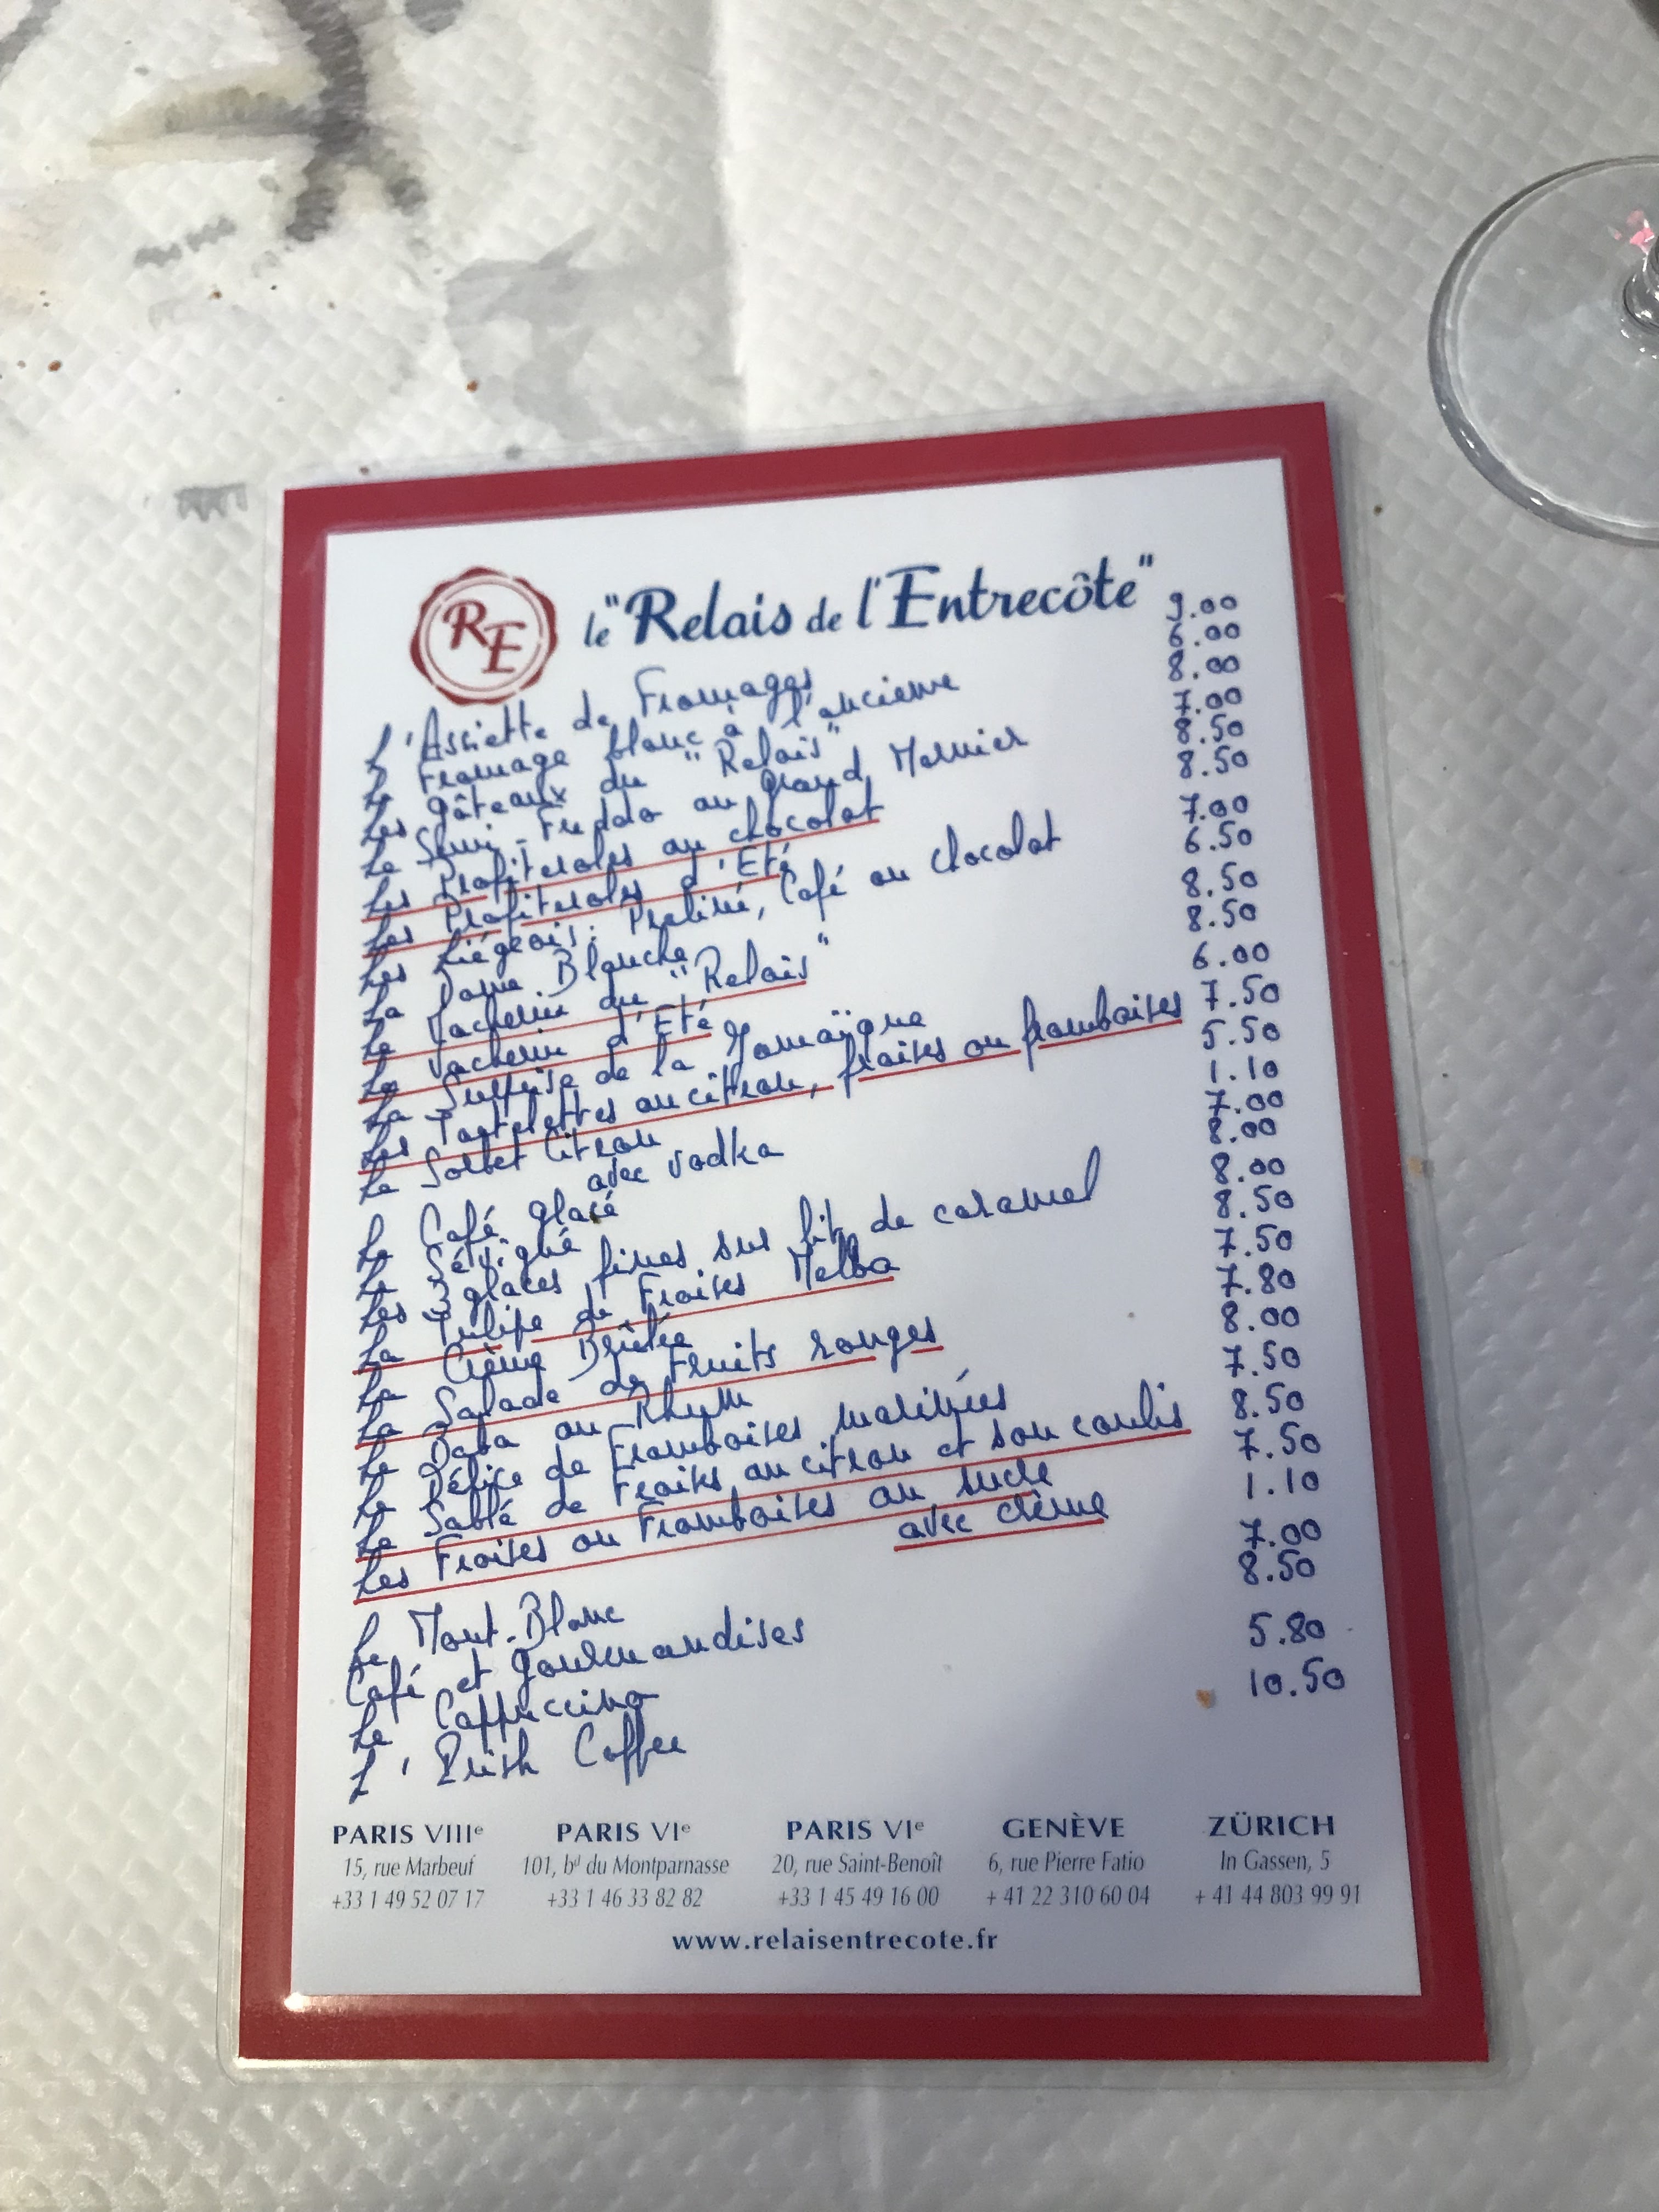 RE
le "Relais de l'Entrecôte"
L'Assiette de Fromages 9.00
Le Fromage blanc à l'ancienne 6.00
Les Gâteaux du "Relais" 8.00
Le Semi-Freddo au Grand Marnier 7.00
Les Profiteroles au chocolat 8.50
Les Profiteroles d'Eté 8.50
Les Liégeois: Praliné, Café ou chocolat 7.00
La Dame Blanche 6.50
Le Vacherin du "Relais" 8.50
Le Vacherin d'Eté 8.50
La Surprise de la Jamaïque 6.00
Les Tartelettes au citron, fraises ou framboises 7.50
Le Sorbet Citron 5.50
avec vodka 1.10
Le Café glacé 7.00
Le Sévigné 8.00
Les 3 glaces fines sur lit de caramel 8.00
La Tulipe de Fraises Melba 8.50
La Crème Brûlée 7.50
La Salade de Fruits rouges 7.80
Le Baba au Rhum 8.00
Le Délice de Framboises marinées 7.50
Le Sablé de Fraises au citron et son coulis 8.50
Les Fraises ou Framboises au sucre 7.50
avec crème 1.10
Le Mont-Blanc 7.00
Café et gourmandises 8.50
Le Cappuccino 5.80
L'Irish Coffee 10.50
PARIS VIIIe PARIS VIe PARIS VIe GENÈVE ZÜRICH
15, rue Marbeuf 101, bd du Montparnasse 20, rue Saint-Benoît 6, rue Pierre Fatio In Gassen, 5
+33 1 49 52 07 17 +33 1 46 33 82 82 +33 1 45 49 16 00 + 41 22 310 60 04 + 41 44 803 99 91
www.relaisentrecote.fr